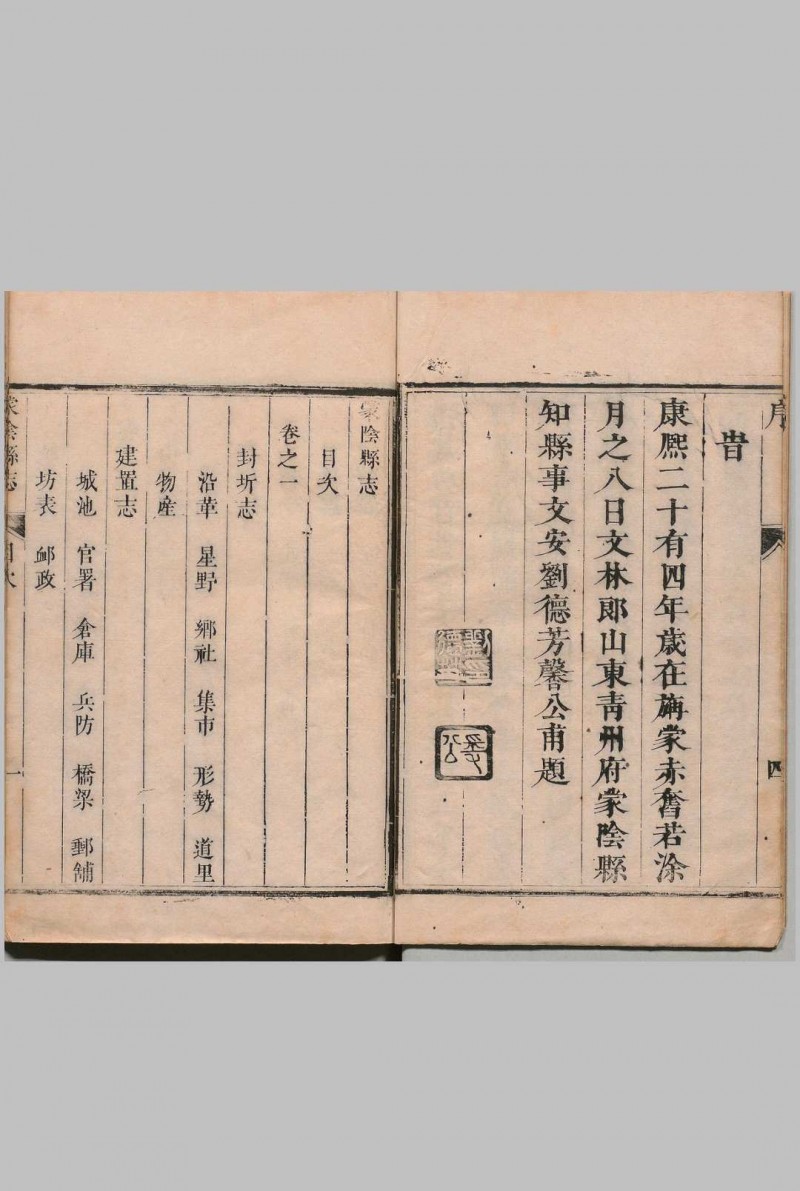 序
四
旹
康熙二十有四年歲在旃蒙赤奮若涂
月之八日文林郎山東青州府蒙陰縣
知縣事文安劉德芳馨公甫題
蒙陰縣志
目次
卷之一
封圻志
沿革 星野 鄉社 集市 形勢 道里
物產
建置志
城池 官署 倉庫 兵防 橋梁 郵舖
坊表 䘏政
蒙陰縣志
目次
一